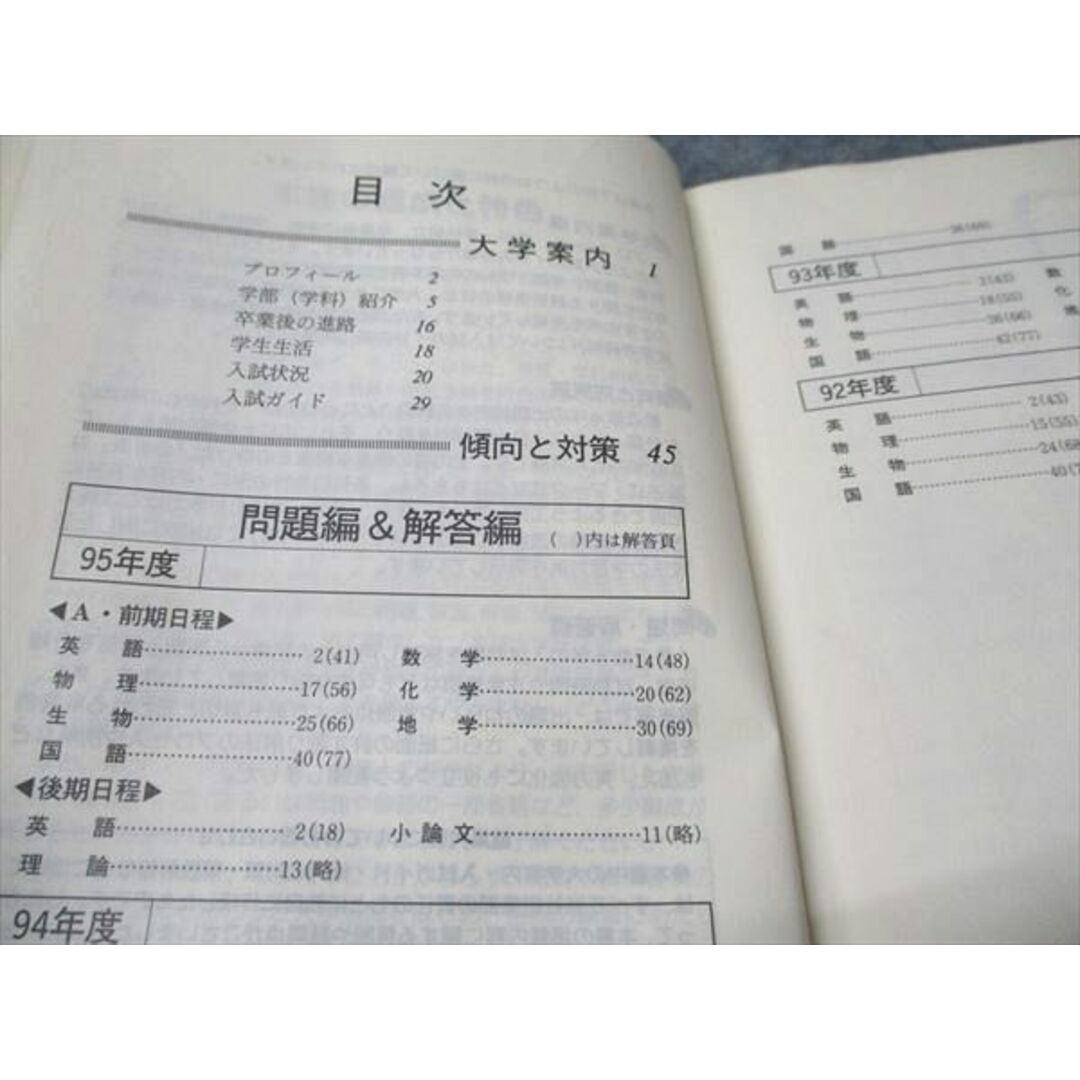 目次
大学案内 1
プロフィール 2
学部(学科)紹介 5
卒業後の進路 16
学生生活 18
入試状況 20
入試ガイド 29
傾向と対策 45
問題編&解答編 ( )内は解答頁
95年度
◀A・前期日程▶
英語……2(41) 数学……14(48)
物理……17(56) 化学……20(62)
生物……25(66) 地学……30(69)
国語……40(77)
◀後期日程▶
英語……2(18) 小論文……11(略)
理論……13(略)
94年度
国語
93年度
英語……2(43) 数
物理……18(55) 化
生物……26(66) 地
国語……42(77)
92年度
英語……2(43)
物理……15(55)
生物……24(68
国語……40(7